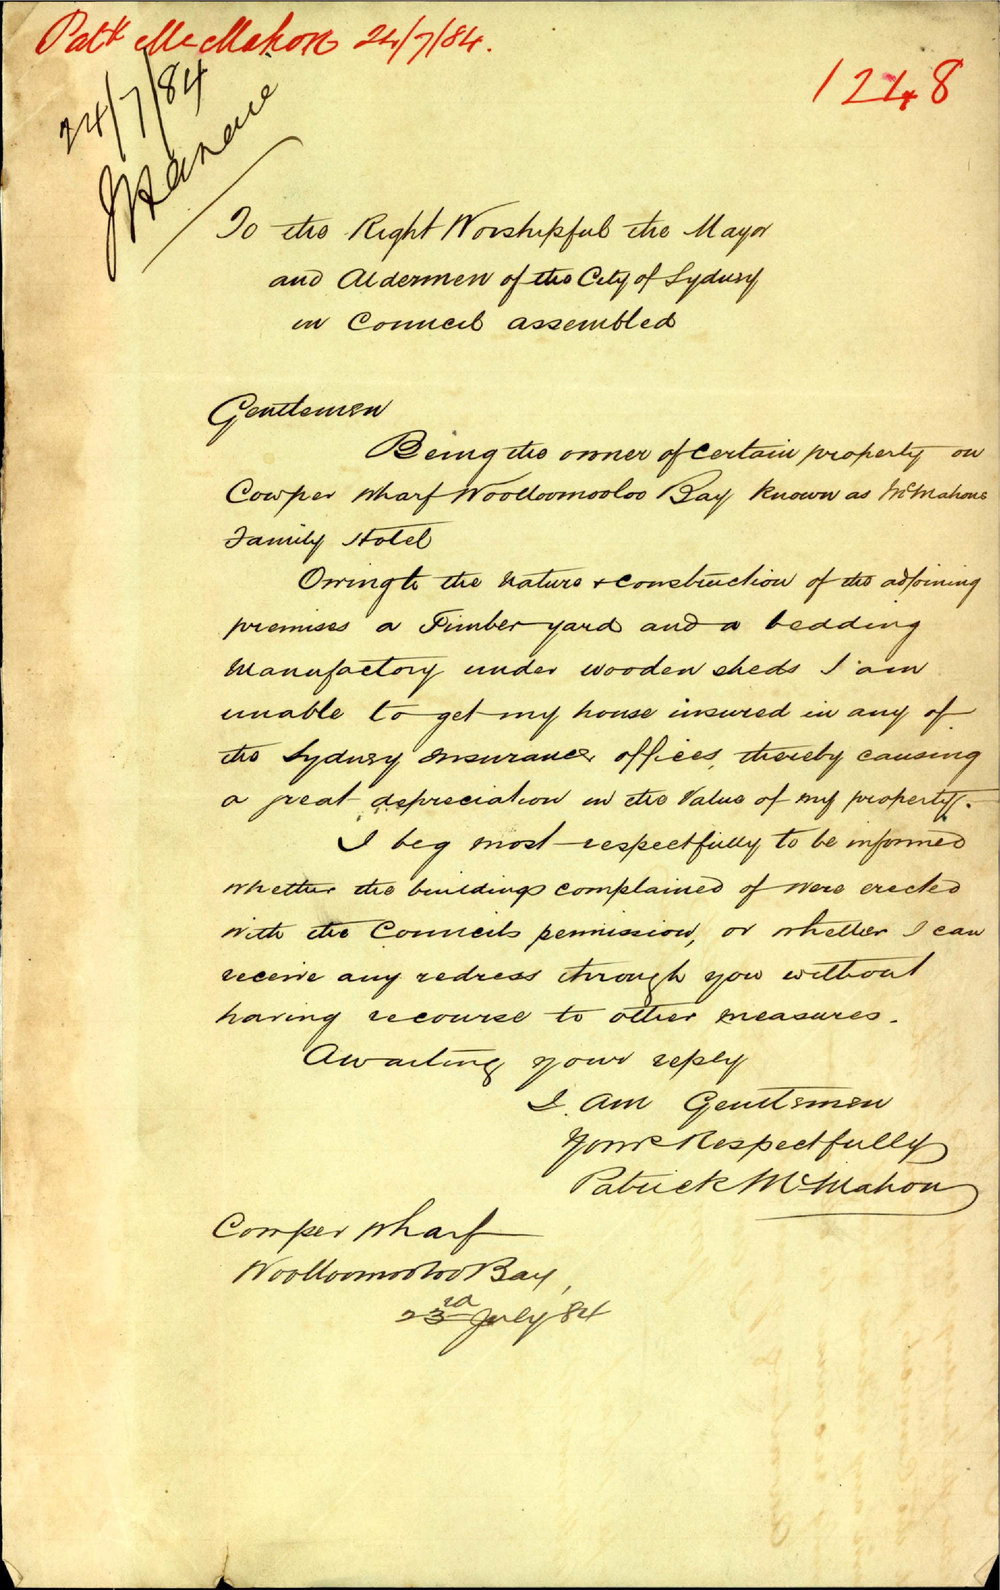 Patk McMahon 24/7/84.
1248
24/7/84
To the Right Worshipful the Mayor
and Aldermen of the City of Sydney
in Council assembled
Gentlemen
Being the owner of certain property on
Cowper Wharf Woolloomooloo Bay known as McMahons
Family Hotel
Owing to the nature + construction of the adjoining
premises a Timber yard and a bedding
Manufactory under wooden sheds I am
unable to get my house insured in any of
the Sydney Insurance offices, thereby causing
a great depreciation in the Value of my property.
I beg most respectfully to be informed
whether the buildings complained of were erected
with the Councils permission, or whether I can
receive any redress through you without
having recourse to other measures.
Awaiting your reply
I am Gentlemen
Yours Respectfully
Patrick McMahon
Cowper Wharf
Woolloomooloo Bay,
23rd July 84